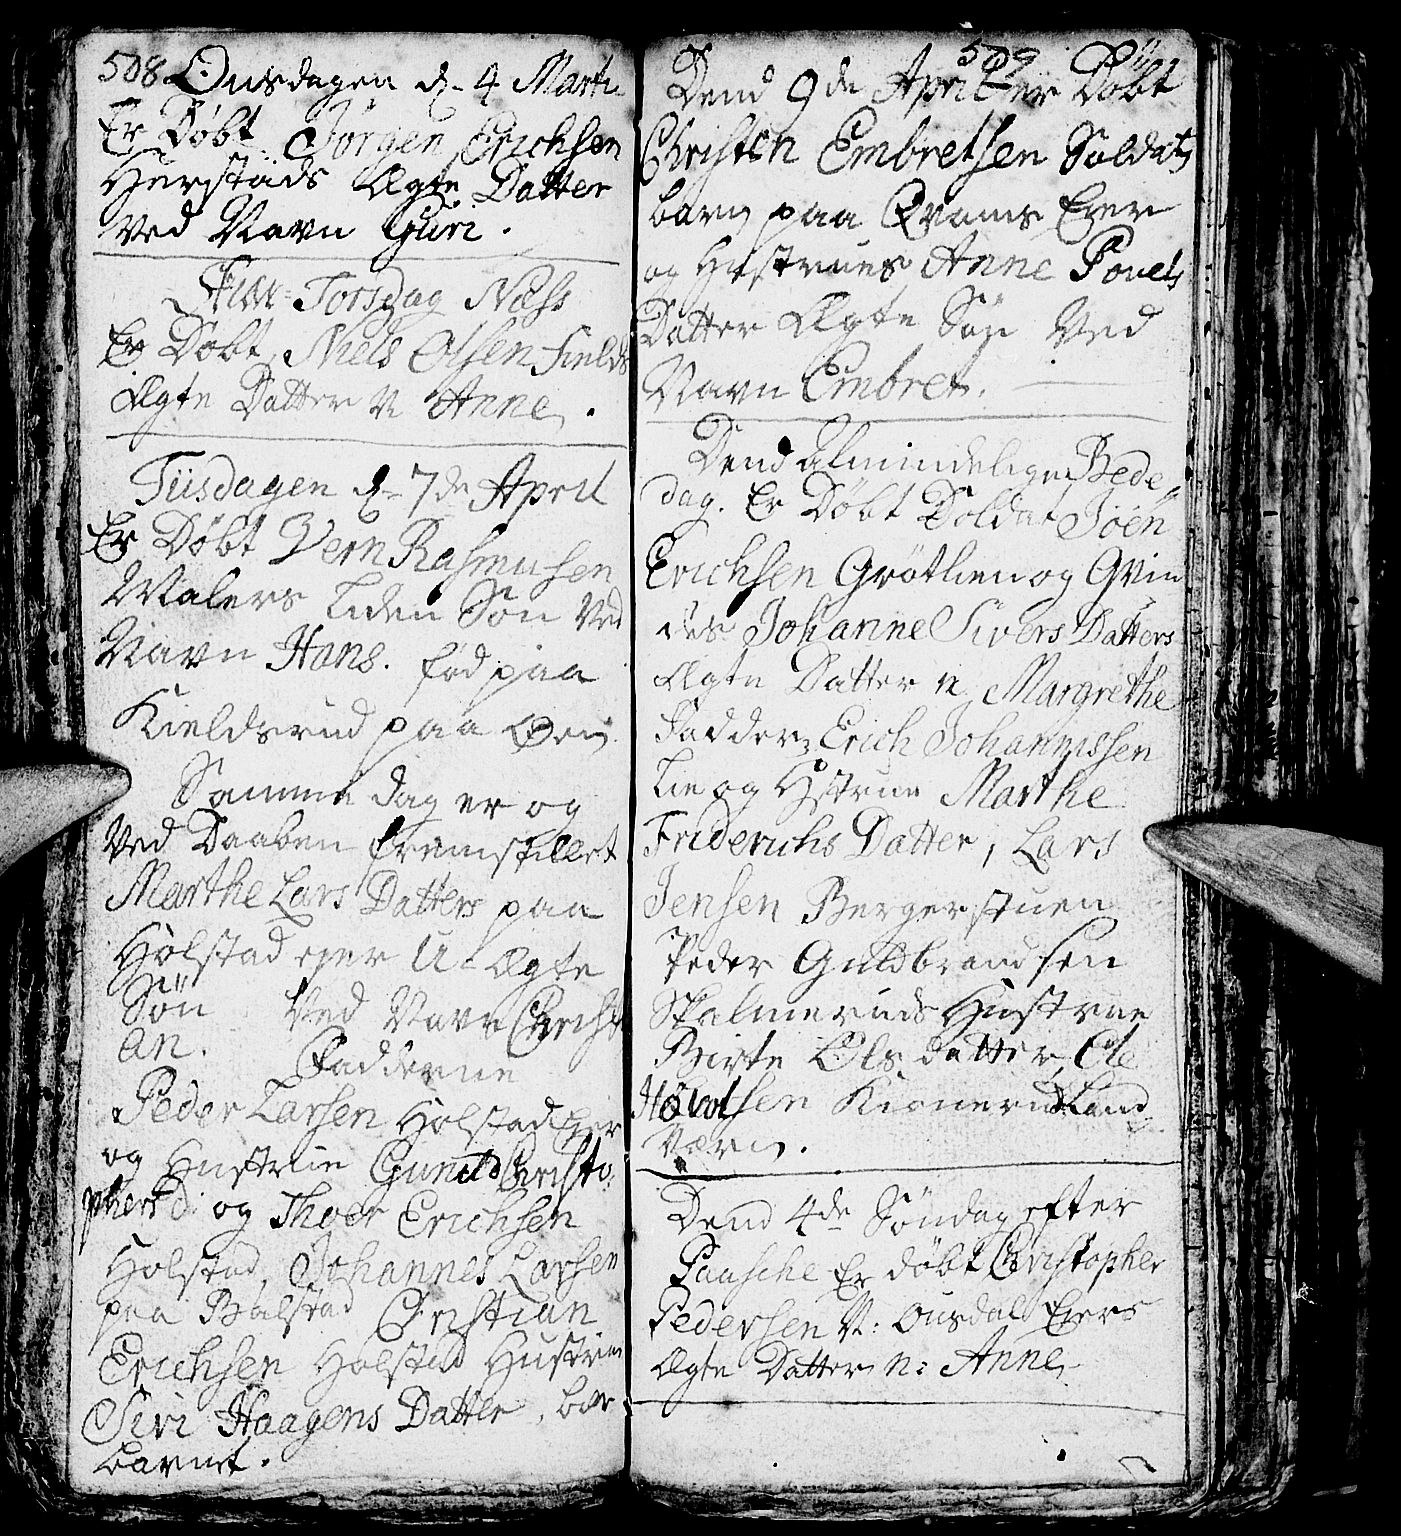 508 Onsdagen d. 4 Martii
Er Døbt Jørgen Erichsen
Herstads Ægte Datter
Ved Navn Guri.
Skier-Torsdag Næst
Er Døbt Niels Olsen Fields
Ægte Datter N Anne.
Tiisdagen d. 7de April
Er Døbt Rasmusen
Malers liden Søn Ved
Navn Hans. fød paa
Kieldsrud paa Øen
Samme dag er og
Ved Daaben fremstillet
Marthe Lars Datters paa
Holstad ejer U-Ægte
Søn Ved Navn Christi
an. Fadderne
Peder Larsen Holstad Ejer
og Hustrue Gunild Christo-
phers d: og Thoer Erichsen
Holstad, Johannes Larsen
paa Balstad Christian
Erichsen Holstad Hustrue
Siri Haagens Datter, bar
barnet.
509
Dend 9de April er Døbt
Christen Embretsen Soldat
barn paa Qvams Ejer
og Hustrues Anne Povels
Datter Ægte Søn Ved
Navn Embret.
Dend Almindelige Bede
dag. Er Døbt Soldat Joen
Erichsen Grøtlien og Qvin
des Johanne Sivers Datters
Ægte Datter N Margrethe
Fadder Erich Johannissen
Lie og Hustrue Marthe
Friderichs Datter, Lars
Jensen Bergerstuen
Peder Guldbrandsen
Skalmeruds Hustrue
Birte Ols datter, Ole
Hovelsen Kionerud Land
Værn.
Dend 4de Søndag efter
Paasche Er døbt Christopher
Pedersen N: Ousdal Ejers
Ægte Datter N: Anne